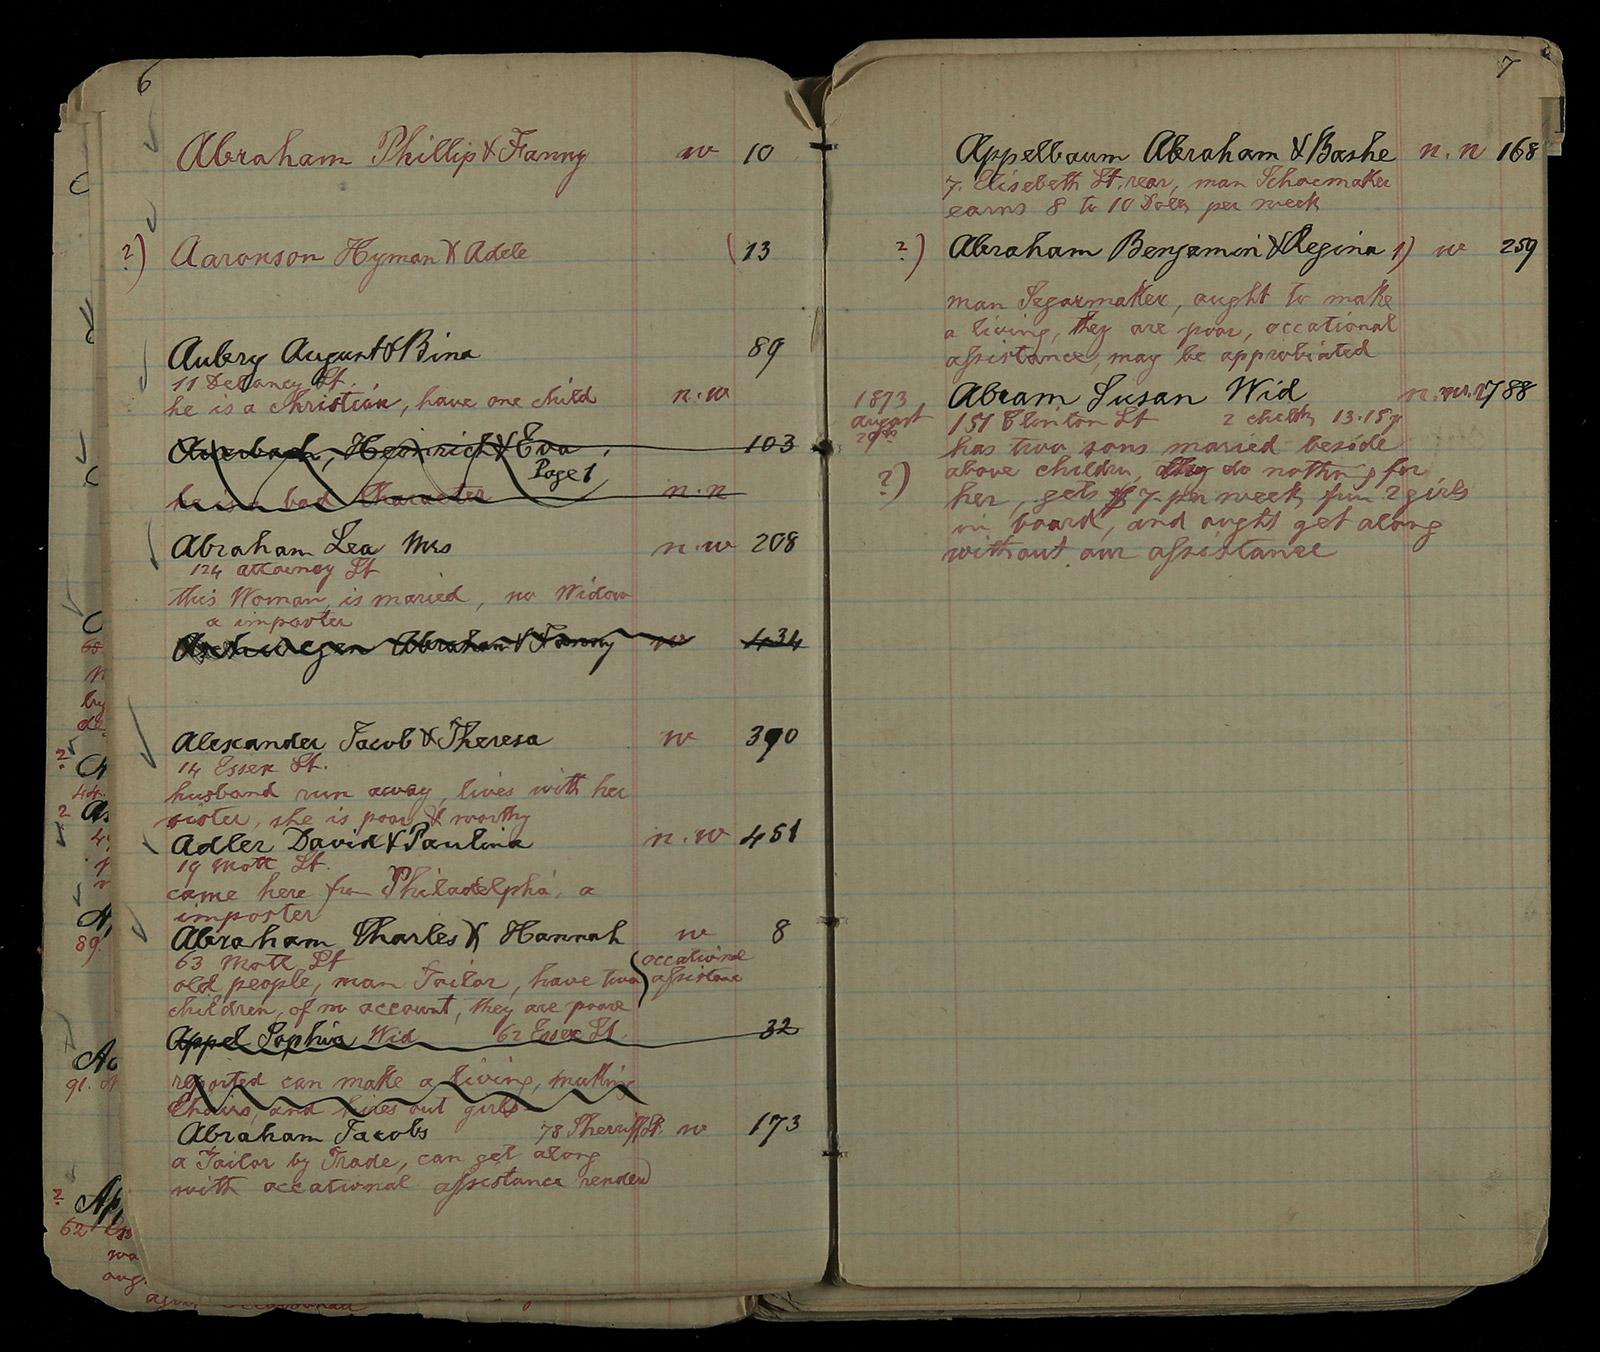 6
Abraham Phillip & Fanny w 10
?) Aaronson Hyman & Adele (13
Aubery August & Bina 89
11 Delancy St.
he is a Christian, have one child n.w
Auerbach, Heinrich & Eva, 103
Page 1
he is a bad Character n.n
Abraham Lea Mrs n.w 208
124 attorney St
this Woman is maried, no Widow
a imposter
Abraham & Fanny w 434
Alexander Jacob & Theresa w 390
14 Essex St.
husband run away, lives with her
sister, she is poor & worthy
Adler David & Paulina n.w 451
19 Mott St.
came here from Philadelphia, a
imposter
Abraham Charles & Hannah w 8
63 Mott St
old people, man Tailor, have two
children, of no account, they are poor
occational
assistance
Appel Sophia Wid 62 Essex St. 32
reported can make a living, making
Chairs, and hires out girls
Abraham Jacobs 78 Sherriff St. w 173
a Tailor by Trade, can get along
with occational assistance rended
7
Appelbaum Abraham & Bashe n.n 168
7. Elisebeth St. rear, man Schoemaker
earns 8 to 10 Dolls per week
?) Abraham Benjamin & Regina 1) w 259
man Segarmaker, ought to make
a living, they are poor, occational
assistance, may be approbiated
1873 Abram Susan Wid 788
august 151 Clinton St 2 childr, 13.15 y
29th has two sons maried beside
above childrn, they do nothing for
?) her, gets $7 per week from 2 girls
in board, and ought get along
without our assistance